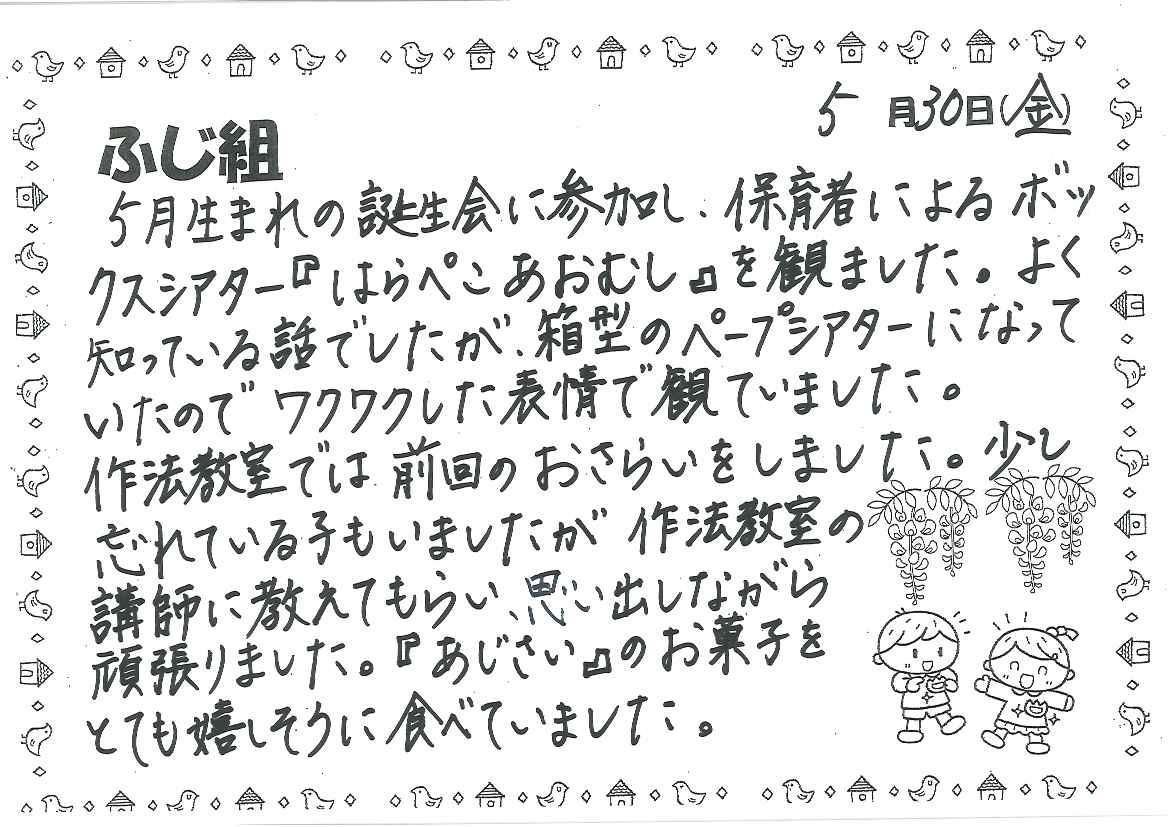 5月30日(金)
ふじ組
5月生まれの誕生会に参加し、保育者によるボッ
クスシアター『はらぺこあおむし』を観ました。よく
知っている話でしたが、箱型のペープシアターになって
いたのでワクワクした表情で観ていました。
作法教室では前回のおさらいをしました。少し
忘れている子もいましたが作法教室の
講師に教えてもらい、思い出しながら
頑張りました。『あじさい』のお菓子を
とても嬉しそうに食べていました。